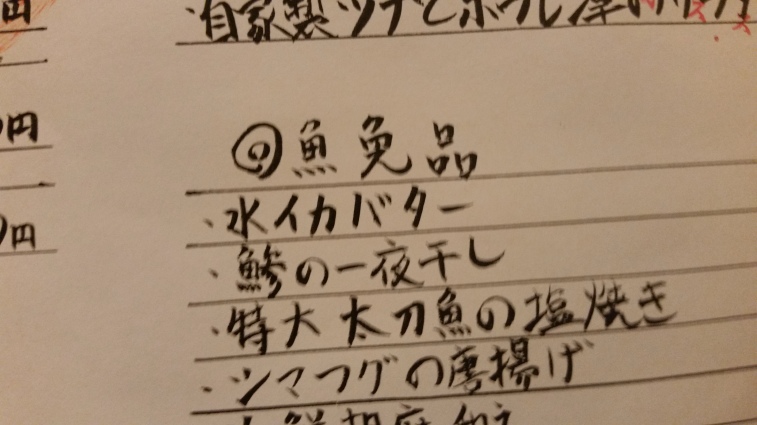 円
・自家製ツナとホウレン草
円
◎魚免品
・水イカバター
円
・鯵の一夜干し
・特大太刀魚の塩焼き
・シマフグの唐揚げ